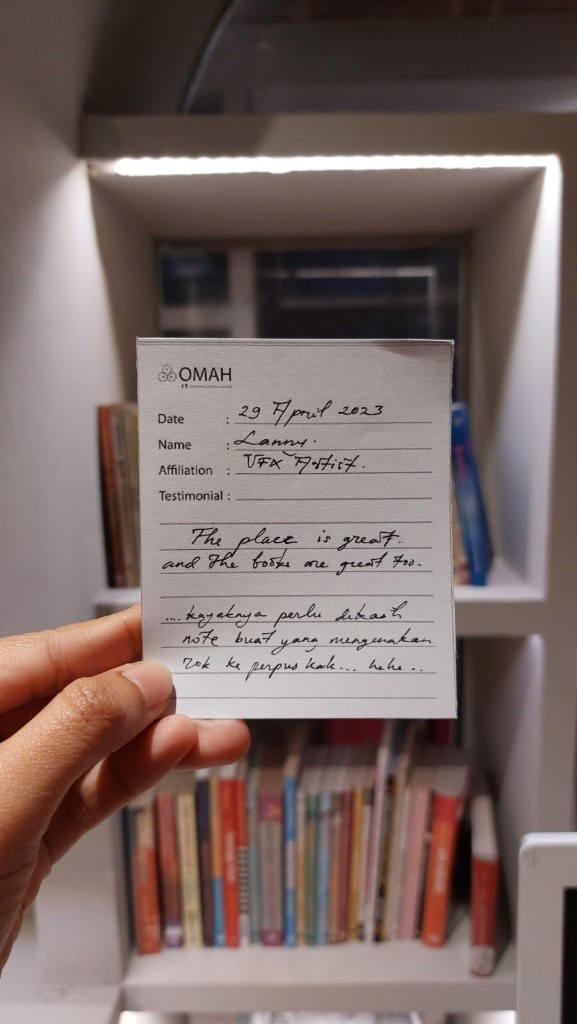 OMAH
Date : 29 April 2023
Name : Lanny.
Affiliation : VFX Artist.
Testimonial :
The place is great.
and the books are great too.
.... kayaknya perlu dikasih
note buat yang mengenakan
rok ke perpus kak... hehe..